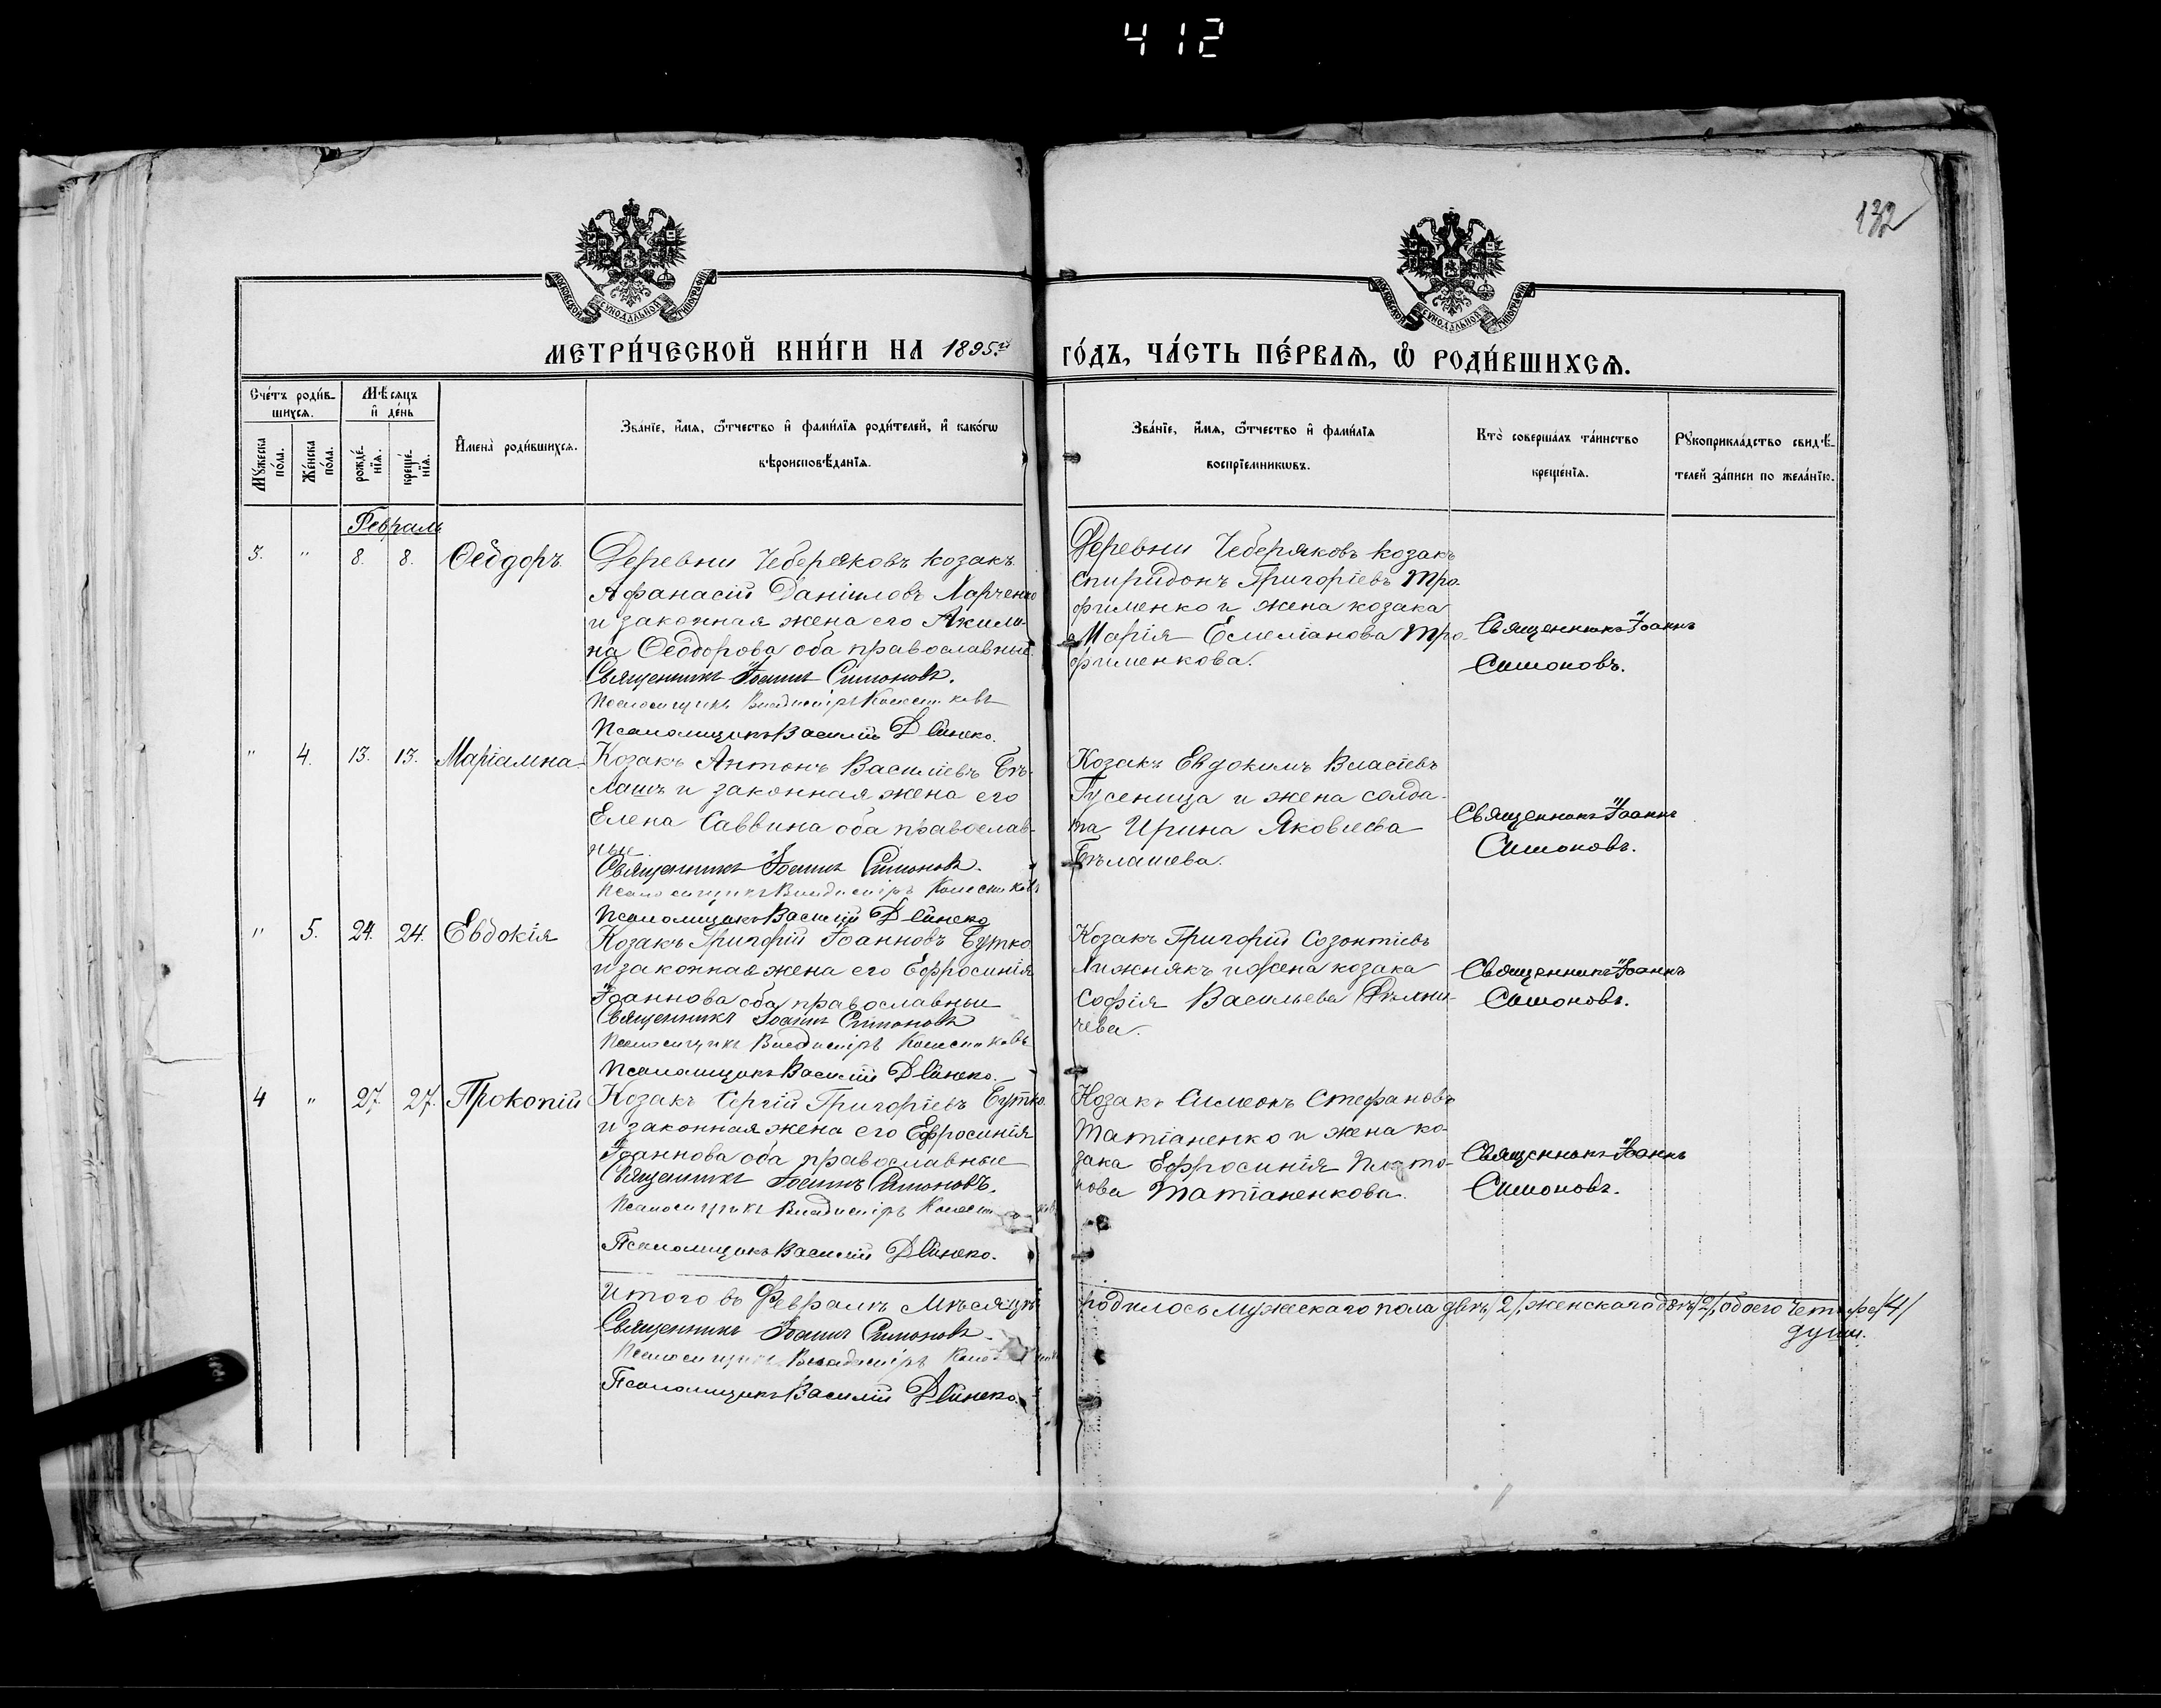 412
132
МОСКОВСКОЙ СѴНОДАЛЬНОЙ ТИПОГРАФІИ
МОСКОВСКОЙ СѴНОДАЛЬНОЙ ТИПОГРАФІИ
МЕТРИ́ЧЕСКОЙ КНИ́ГИ НА 1895й
ГО́ДЪ, ЧА́СТЬ ПЕ́РВАѦ, Ѡ РОДИ́ВШИХСѦ.
Сче́тъ роди́в-
шихсѧ.
Мѣсѧцъ
и де́нь
Мꙋжеска
по́ла.
Же́нска
по́ла.
рожде́-
нїѧ.
креще́-
нїѧ.
Имена̀ роди́вшихсѧ.
Зва́нїе, и́мѧ, ѻ́тчество и фами́лїѧ роди́телей, и како́гѡ
вѣроисповѣ́данїѧ.
Зва́нїе, и́мѧ, ѻ́тчество и фами́лїѧ
воспрїемникѡвъ.
Кто̀ соверша́лъ та́инство
креще́нїѧ.
Рꙋкоприкла́дство свидѣ́-
телей за́писи по жела́нїю.
Февраль
3. " 8. 8. Ѳеодоръ.
Деревни Чеберяковъ козакъ
Афанасій Даніиловъ Харченко
и законная жена его Акили-
на Ѳеодорова оба православные.
Священникъ Іоаннъ Симоновъ.
Псаломщикъ Владиміръ Колесниковъ
Псаломщикъ Василій Дейнеко.
Деревни Чеберяковъ козакъ
Спиридонъ Григоріевъ Тро-
фименко и жена козака
Марія Емеліанова Тро-
фименкова.
Священникъ Іоаннъ
Симоновъ.
" 4. 13. 13. Маріамна.
Козакъ Антонъ Василіевъ Бѣ-
лашъ и законная жена его
Елена Саввина оба православ-
ные.
Священникъ Іоаннъ Симоновъ.
Псаломщикъ Владиміръ Колесниковъ
Псаломщикъ Василій Дейнеко
Козакъ Евдокимъ Власіевъ
Гусеница и жена солда-
та Ирина Яковлева
Бѣлашева.
Священникъ Іоаннъ
Симоновъ.
" 5. 24. 24. Евдокія
Козакъ Григорій Іоанновъ Бутко
и законная жена его Ефросинія
Іоаннова оба православные
Священникъ Іоаннъ Симоновъ
Псаломщикъ Владиміръ Колесниковъ
Псаломщикъ Василій Дейнеко.
Козакъ Григорій Созонтіевъ
Лижнякъ и жена козака
Софія Васильева
чева.
Священникъ Іоаннъ
Симоновъ.
4 " 27 27. Прокопій
Козакъ Сергій Григоріевъ Бутко.
и законная жена его Ефросинія
Іоаннова оба православные
Священникъ Іоаннъ Симоновъ.
Псаломщикъ Владиміръ Колесниковъ
Псаломщикъ Василій Дейнеко.
Козакъ Симеонъ Стефановъ
Татіаненко и жена ко-
зака Ефросинія Плато-
нова Татіаненкова.
Священникъ Іоаннъ
Симоновъ.
Итого въ Февралѣ Мѣсяцѣ родилось мужескаго пола двѣ /2/, женскаго двѣ /2/, обоего четыре /4/
души.
Священникъ Іоаннъ Симоновъ.
Псаломщикъ Владиміръ
Псаломщикъ Василій Дейнеко.